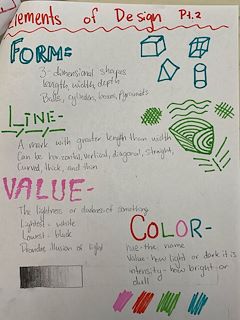 Elements of Design Pt.2
FORM=
3-dimensional shapes
length width depth
Balls, cylinders, boxes, Pyramids
LINE-
A mark with greater length than width
Can be horizontal, vertical, diagonal, straight,
Curved, thick, and thin
VALUE-
The lightness or darkness of something
Lightest - white
Lowest - black
Provides illusion of light
COLOR-
hue-the name
Value-how light or dark it is
intensity-how bright or
dull